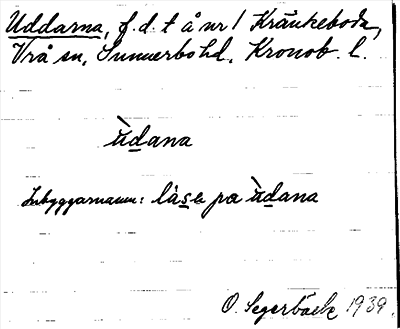 Uddarna, f.d. t å nr 1 Kränkeboda,
Vrå sn, Sunnerbo hd, Kronob. l.
ùdana
Inbyggarnamn: låsa pa ùdana
O. Segerbäck 1939.